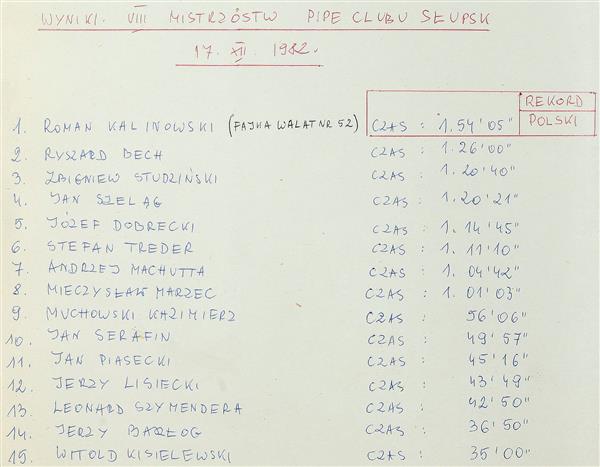 WYNIKI. VIII MISTRZÓSTW PIPE CLUBU SŁUPSK
17. XII. 1982.
REKORD
1. ROMAN KALINOWSKI (FAJKA WALAT NR 52) CZAS : 1.54'05" POLSKI
2. RYSZARD BECH CZAS : 1.26'00"
3. ZBIGNIEW STUDZIŃSKI CZAS : 1.20'40"
4. JAN SZELĄG CZAS : 1.20'21"
5. JÓZEF DOBRECKI CZAS : 1.14'45"
6. STEFAN TREDER CZAS : 1.11'10"
7. ANDRZEJ MACHUTTA CZAS : 1.04'42"
8. MIECZYSŁAW MARZEC CZAS : 1.01'03"
9. MUCHOWSKI KAZIMIERZ CZAS : 56'06"
10. JAN SERAFIN CZAS : 49'57"
11. JAN PIASECKI CZAS : 45'16"
12. JERZY LISIECKI CZAS : 43'49"
13. LEONARD SZYMENDERA CZAS : 42'50"
14. JERZY BARŁOG CZAS : 36'50"
15. WITOLD KISIELEWSKI CZAS : 35'00"